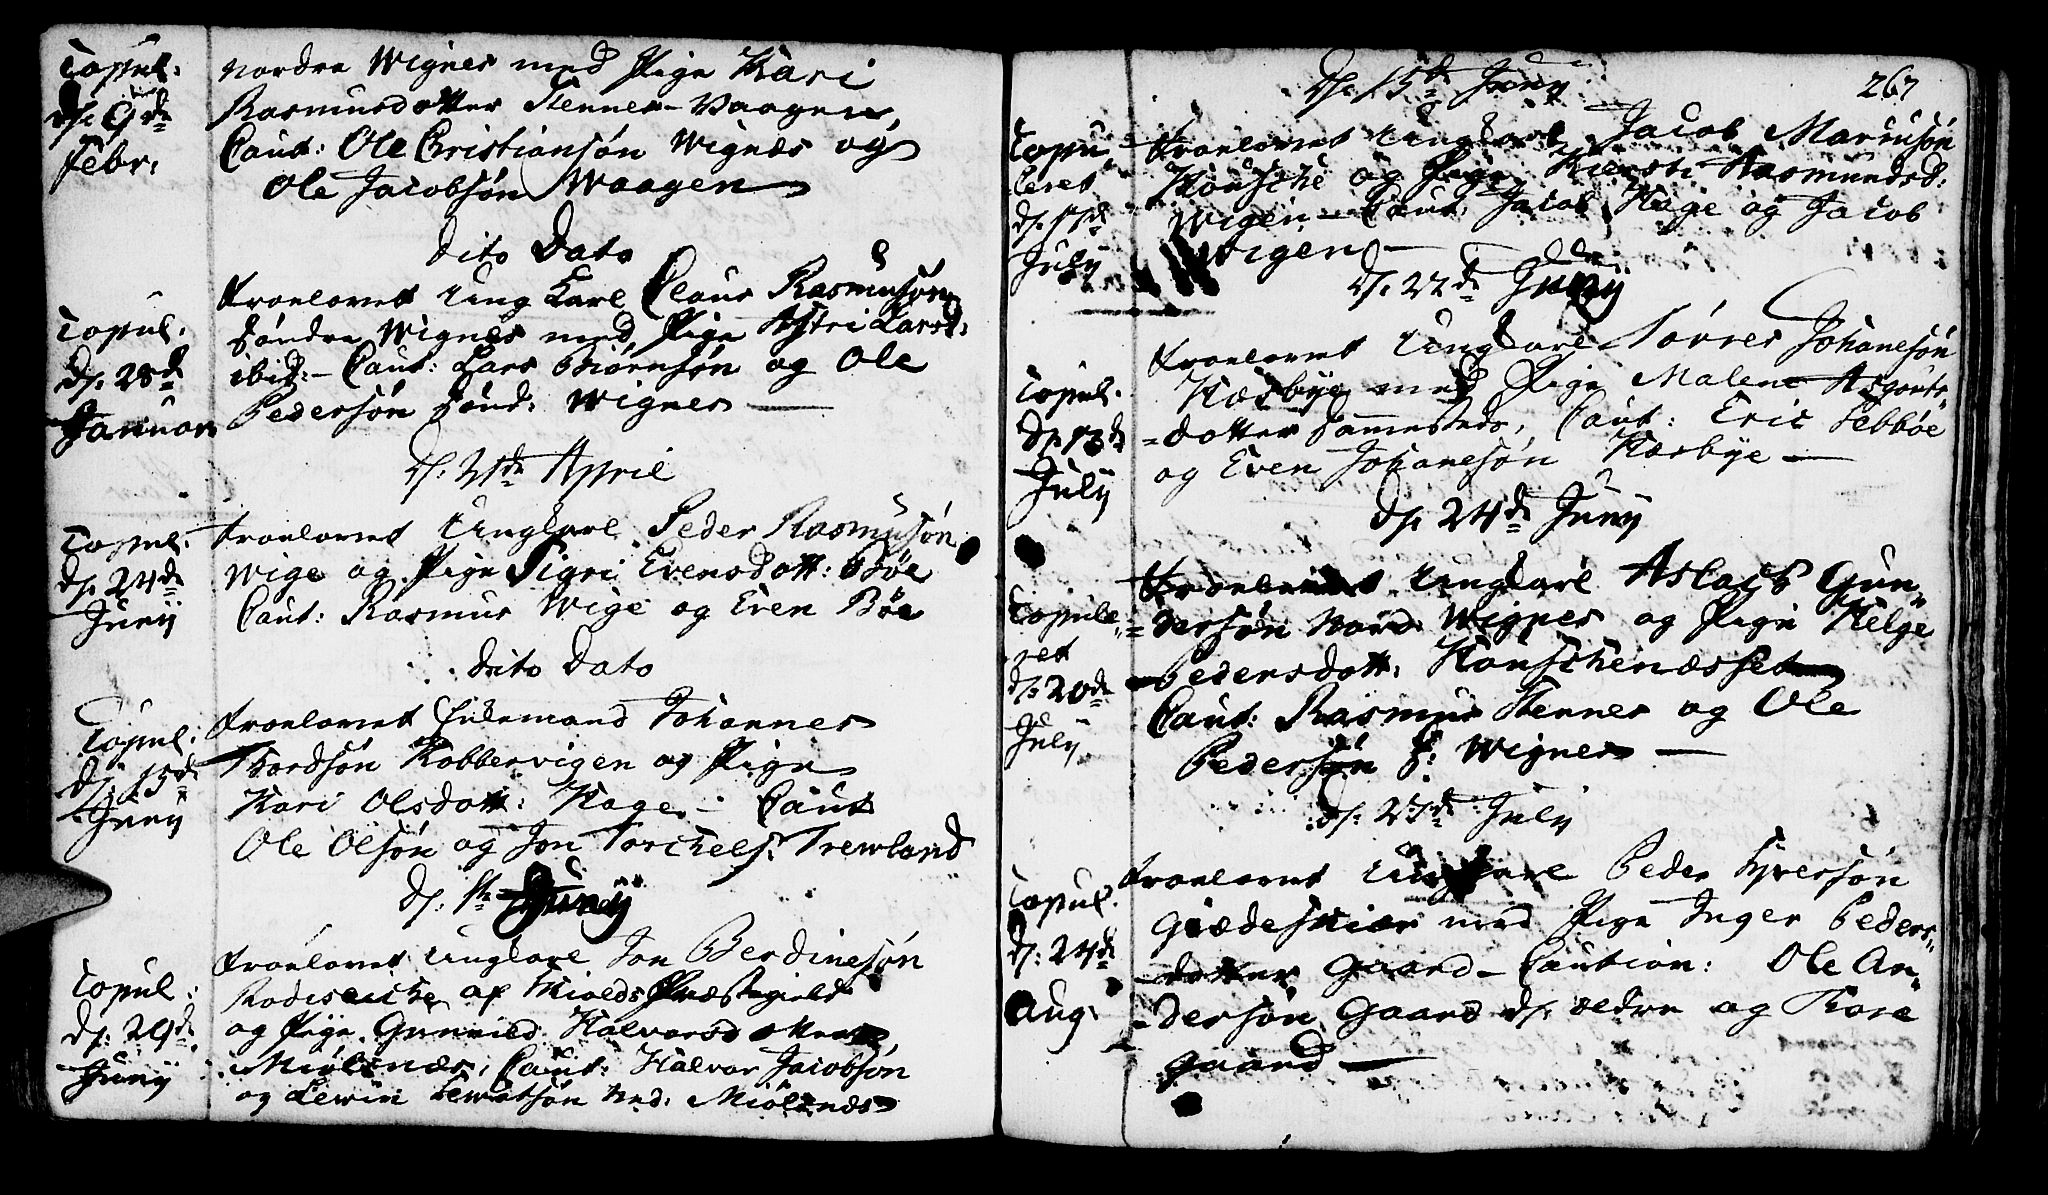 Copul.
d. 9de
Febr.
Nordre Wignes med Pige Kari
Rasmusdotter Stennes-Vaagen,
Caut: Ole Christiansøn Wignæs og
Ole Jacobsøn Waagen
Dito Dato
Copul.
d. 28de
Januar
Troelovet Ung Karl Claus Rasmusøn
Søndre Wignes med Pige Astri Larsd:
ibid:- Caut: Lars Biørnsøn og Ole
Pedersøn Sønd: Wignes
d. 21de April
Copul.
d. 24de
Junij
Troelovet Ungkarl Peder Rasmusøn
Wige og Pige Sigri Evensdott: Bøe
Caut: Rasmus Wige og Even Bøe
Dito Dato
Copul.
d. 15de
Junij
Troelovet Enkemand Johannes
Thordsøn Kobbervigen og Pige
Kari Olsdott: Hage - Caut
Ole Olsøn og Jon Torchels: Trewland
d. 1te Junij
Copul.
d. 29de
Junij
Troelovet Ungkarl Jon Berdinesøn
af Skiolds Præstegield
og Pige Gunnild Halvarsdotter
Miølsnæs, Caut: Halvor Jacobsøn
og Lewin Lewatsøn Ned: Miølsnæs
267
d. 15de Junij
Copu-
leret
d. 1ste
July
Troelovet Ungkarl Jacob Mariusøn
Housche og Pige Kiersti Aasmundsd:
Wigen - Caut: Jacob Hage og Jacob
Wigen
d. 22de Junij
Copul.
d. 13de
Julij
Troelovet Ungkarl Sørres Johanesøn
Hæsbye med Pige Malene Asgouts-
=dotter sammesteds, Caut: Eric Sebbøe
og Even Johanesøn Hæsbye
d. 24de Junij
Copule-
ret
d. 20de
July
Troelovet Ungkarl Aslach Gun-
=dersøn Nord: Wignes og Pige Helge
Pedersdott: Houschenæsset
Caut: Rasmus Stennes og Ole
Pedersøn S: Wignes
d. 23de July
Copul.
d. 24de
Aug.
Troelovet Ungkarl Peder Syversøn
Giædeskier med Pige Inger Peders-
dotter Gaard - Caution: Ole An-
=dersøn Gaard d. ældre og Tore
Gaard